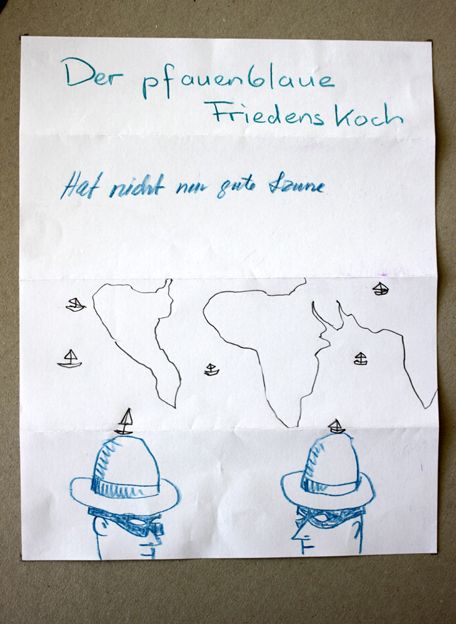 Der pfauenblaue
Friedens Koch
Hat nicht nur gute Laune